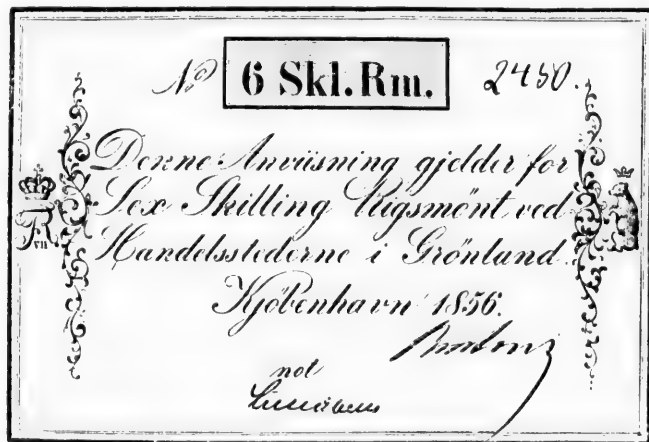 No 6 Skl. Rm. 2450.
Denne Anviisning gjelder for
Sex Skilling Rigsmönt ved
Handelsstederne i Grönland.
Kjöbenhavn 1856.
not